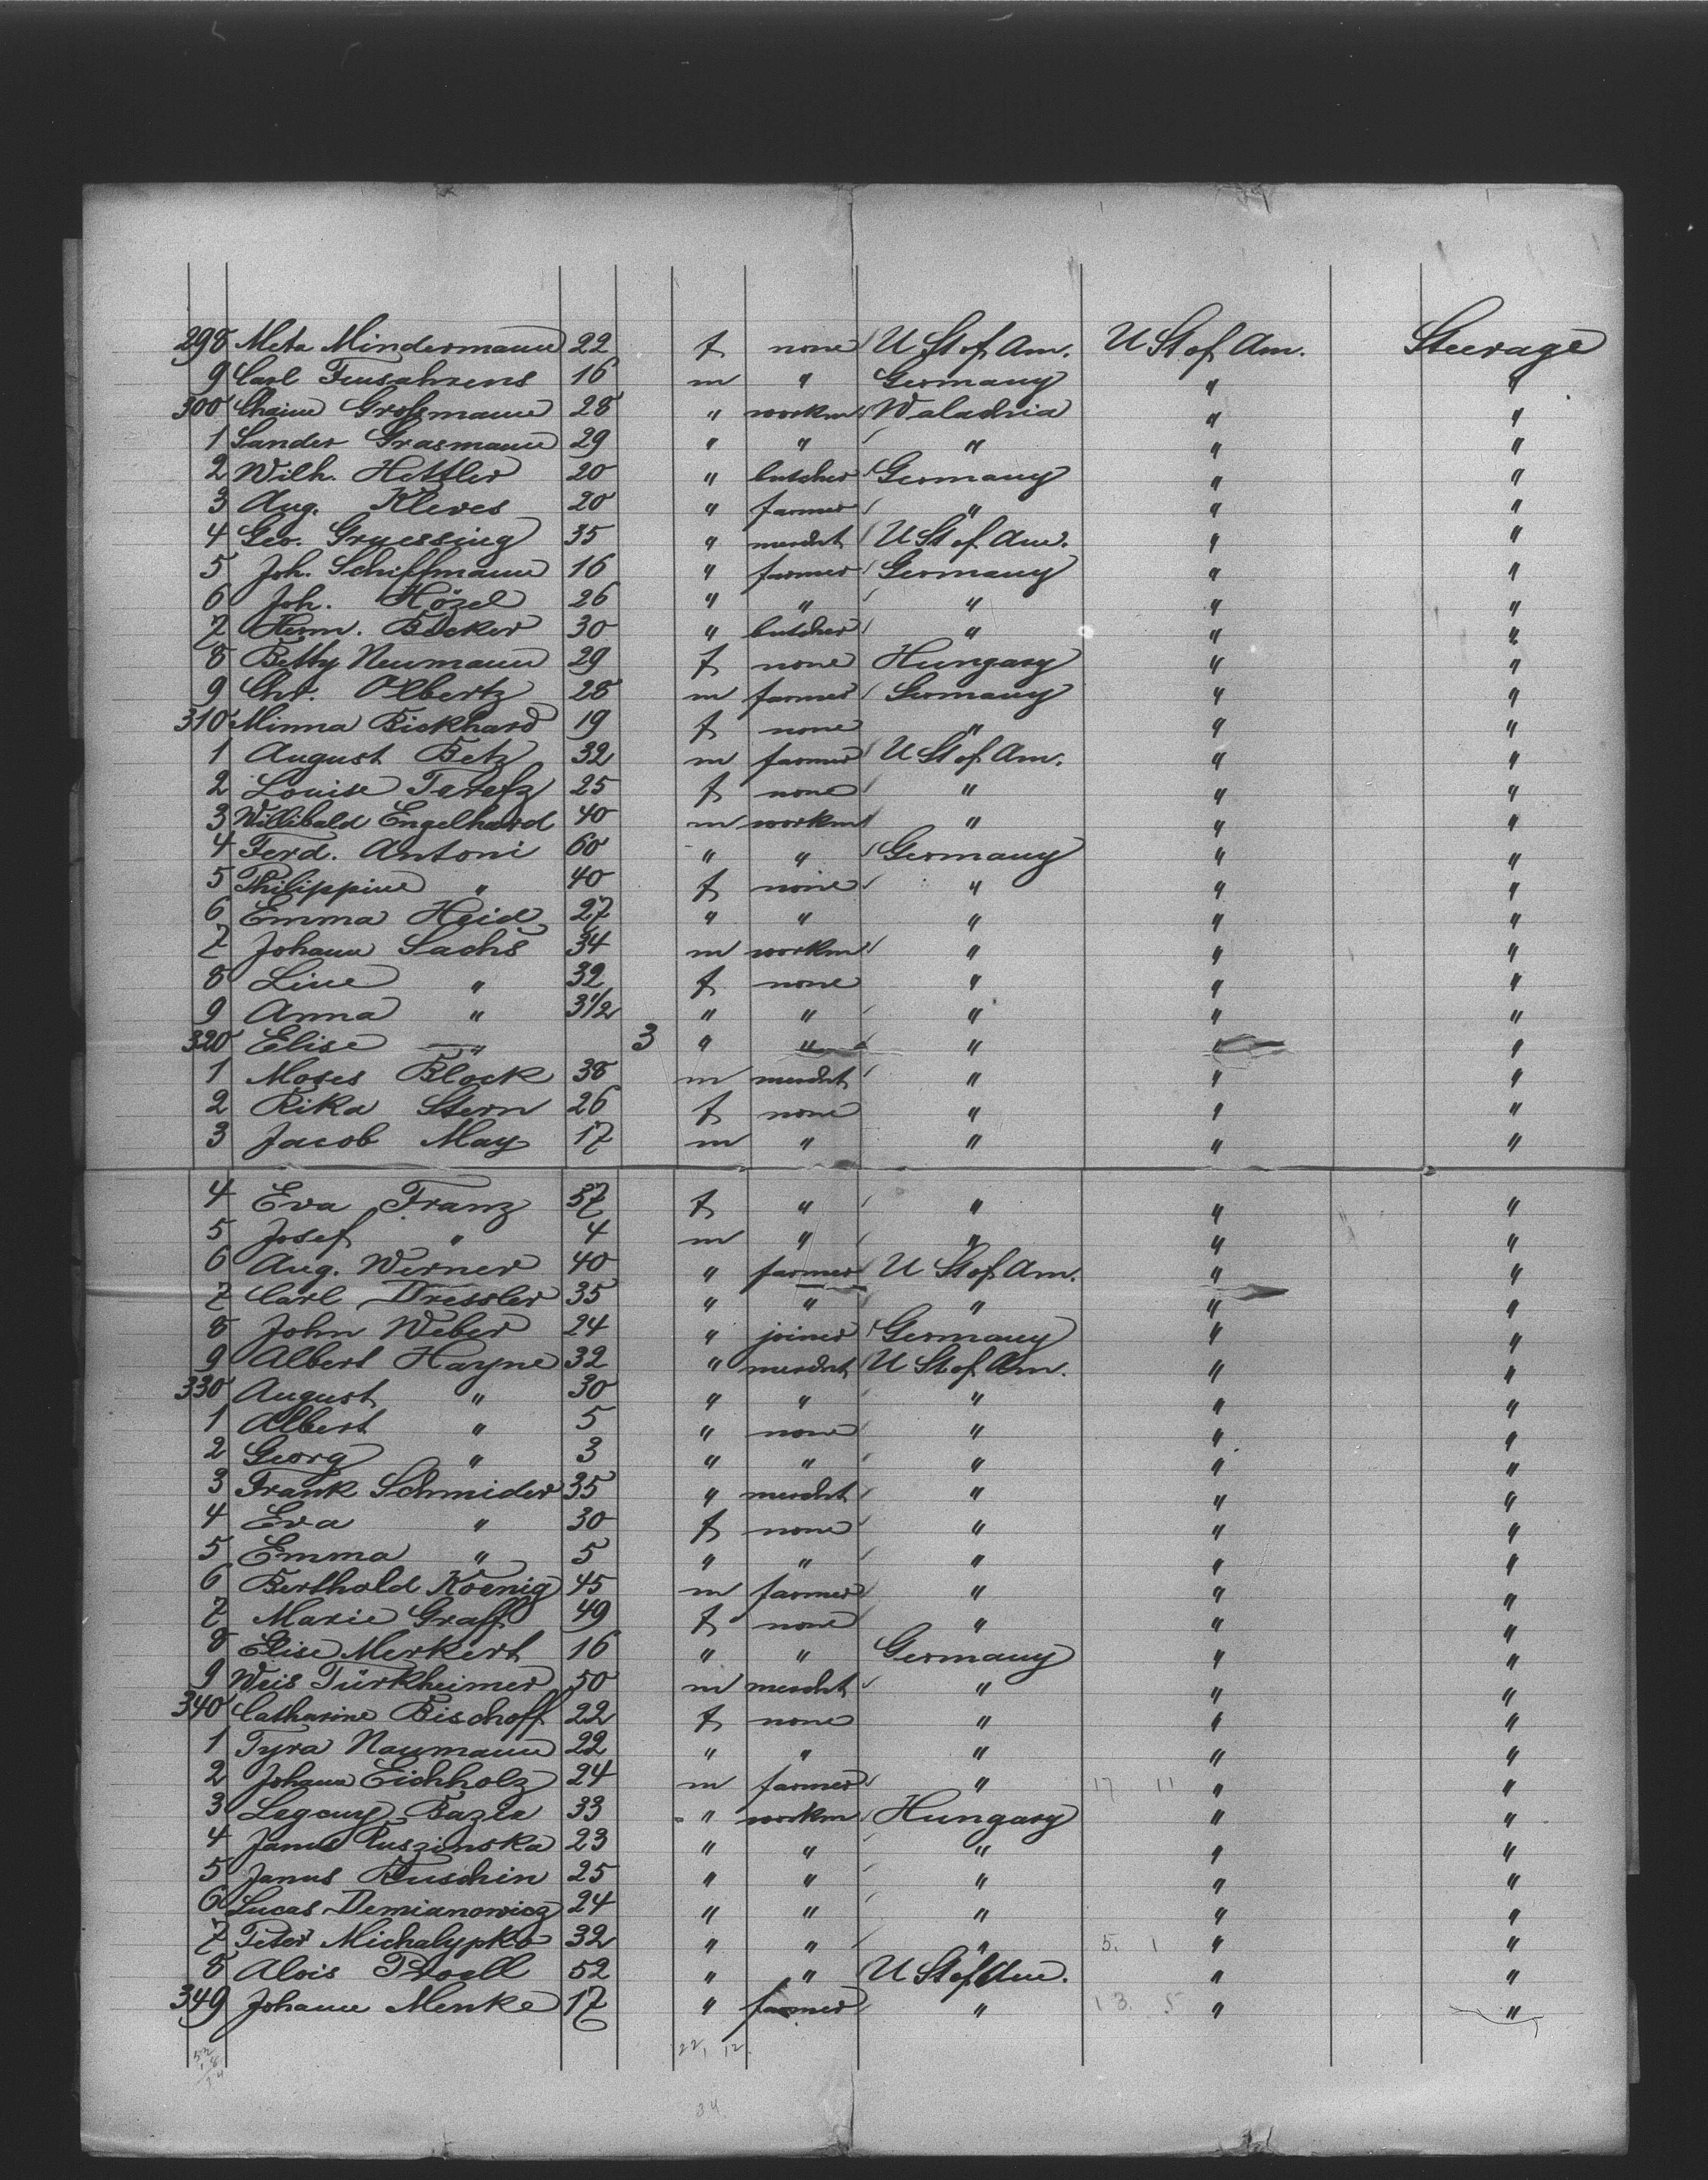 298 Meta Mindermann 22 f none U St of Am. U St of Am. Steerage
9 Carl Feusahrens 16 m " Germany " "
300 Chaim Großmann 28 " workm Walachia " "
1 Sander Grasmann 29 " " " " "
2 Wilh. Hettler 20 " butcher Germany " "
3 Aug. Kleves 20 " farmer " " "
4 Geo. Gruessing 35 " mercht U St of Am. " "
5 Joh. Schiffmann 16 " farmer Germany " "
6 Joh. Hözel 26 " " " " "
7 Herm. Böcker 30 " butcher " " "
8 Betty Neumann 29 f none Hungary " "
9 Chr. Olbertz 28 m farmer Germany " "
310 Minna Bickhard 19 f none " " "
1 August Betz 32 m farmer U St of Am. " "
2 Louise 25 f none " " "
3 Willibald Engelhard 40 m workm " " "
4 Ferd. Antoni 60 " " Germany " "
5 Philippine " 40 f none " " "
6 Emma Heid 27 " " " " "
7 Johann Sachs 34 m workm " " "
8 Line " 32 f none " " "
9 Anna " 3 1/2 " " " " "
320 Elise " 3 " " " " "
1 Moses Block 38 m mercht " " "
2 Rika Stern 26 f none " " "
3 Jacob May 17 m " " " "
4 Eva Franz 57 f " " " "
5 Josef " 4 m " " " "
6 Aug. Werner 40 " farmer U St of Am. " "
7 Carl Dressler 35 " " " " "
8 John Weber 24 " joiner Germany " "
9 Albert Hayne 32 " mercht U St of Am. " "
330 August " 30 " " " " "
1 Albert " 5 " none " " "
2 Georg " 3 " " " " "
3 Frank Schmider 35 " mercht " " "
4 Eva " 30 f none " " "
5 Emma " 5 " " " " "
6 Berthold Koenig 45 m farmer " " "
7 Marie Graff 49 f none " " "
8 Elise Merkert 16 " " Germany " "
9 Weis Türkheimer 50 m mercht " " "
340 Catharine Bischoff 22 f none " " "
1 Tyra Naumann 22 " " " " "
2 Johann Eichholz 24 m farmer " 17 11 " "
3 Bazla 33 " workm Hungary " "
4 Janus Ruszinska 23 " " " " "
5 Janus Buschin 25 " " " " "
6 Lucas Demianowicz 24 " " " " "
7 Peter Michalypko 32 " " " 5. 1 " "
8 Alois Proell 52 " " U St of Am. " "
349 Johann Menke 17 " farmer " 13. 5 " "
22, 12.
34